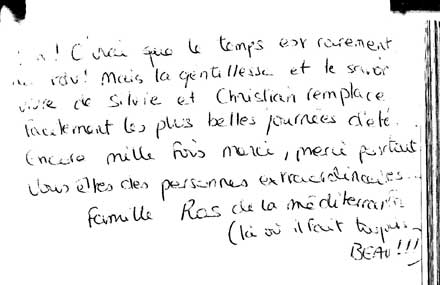 ! C'vrai que le temps est rarement
rdv! Mais la gentillesse et le savoir
vivre de Silvie et Christian remplace
facilement les plus belles journées d'été.
Encore mille fois merci, merci partout
Vous êtes des personnes extraordinaires...
Famille Ros de la méditerranée
(là où il fait toujours
BEAU!!!)